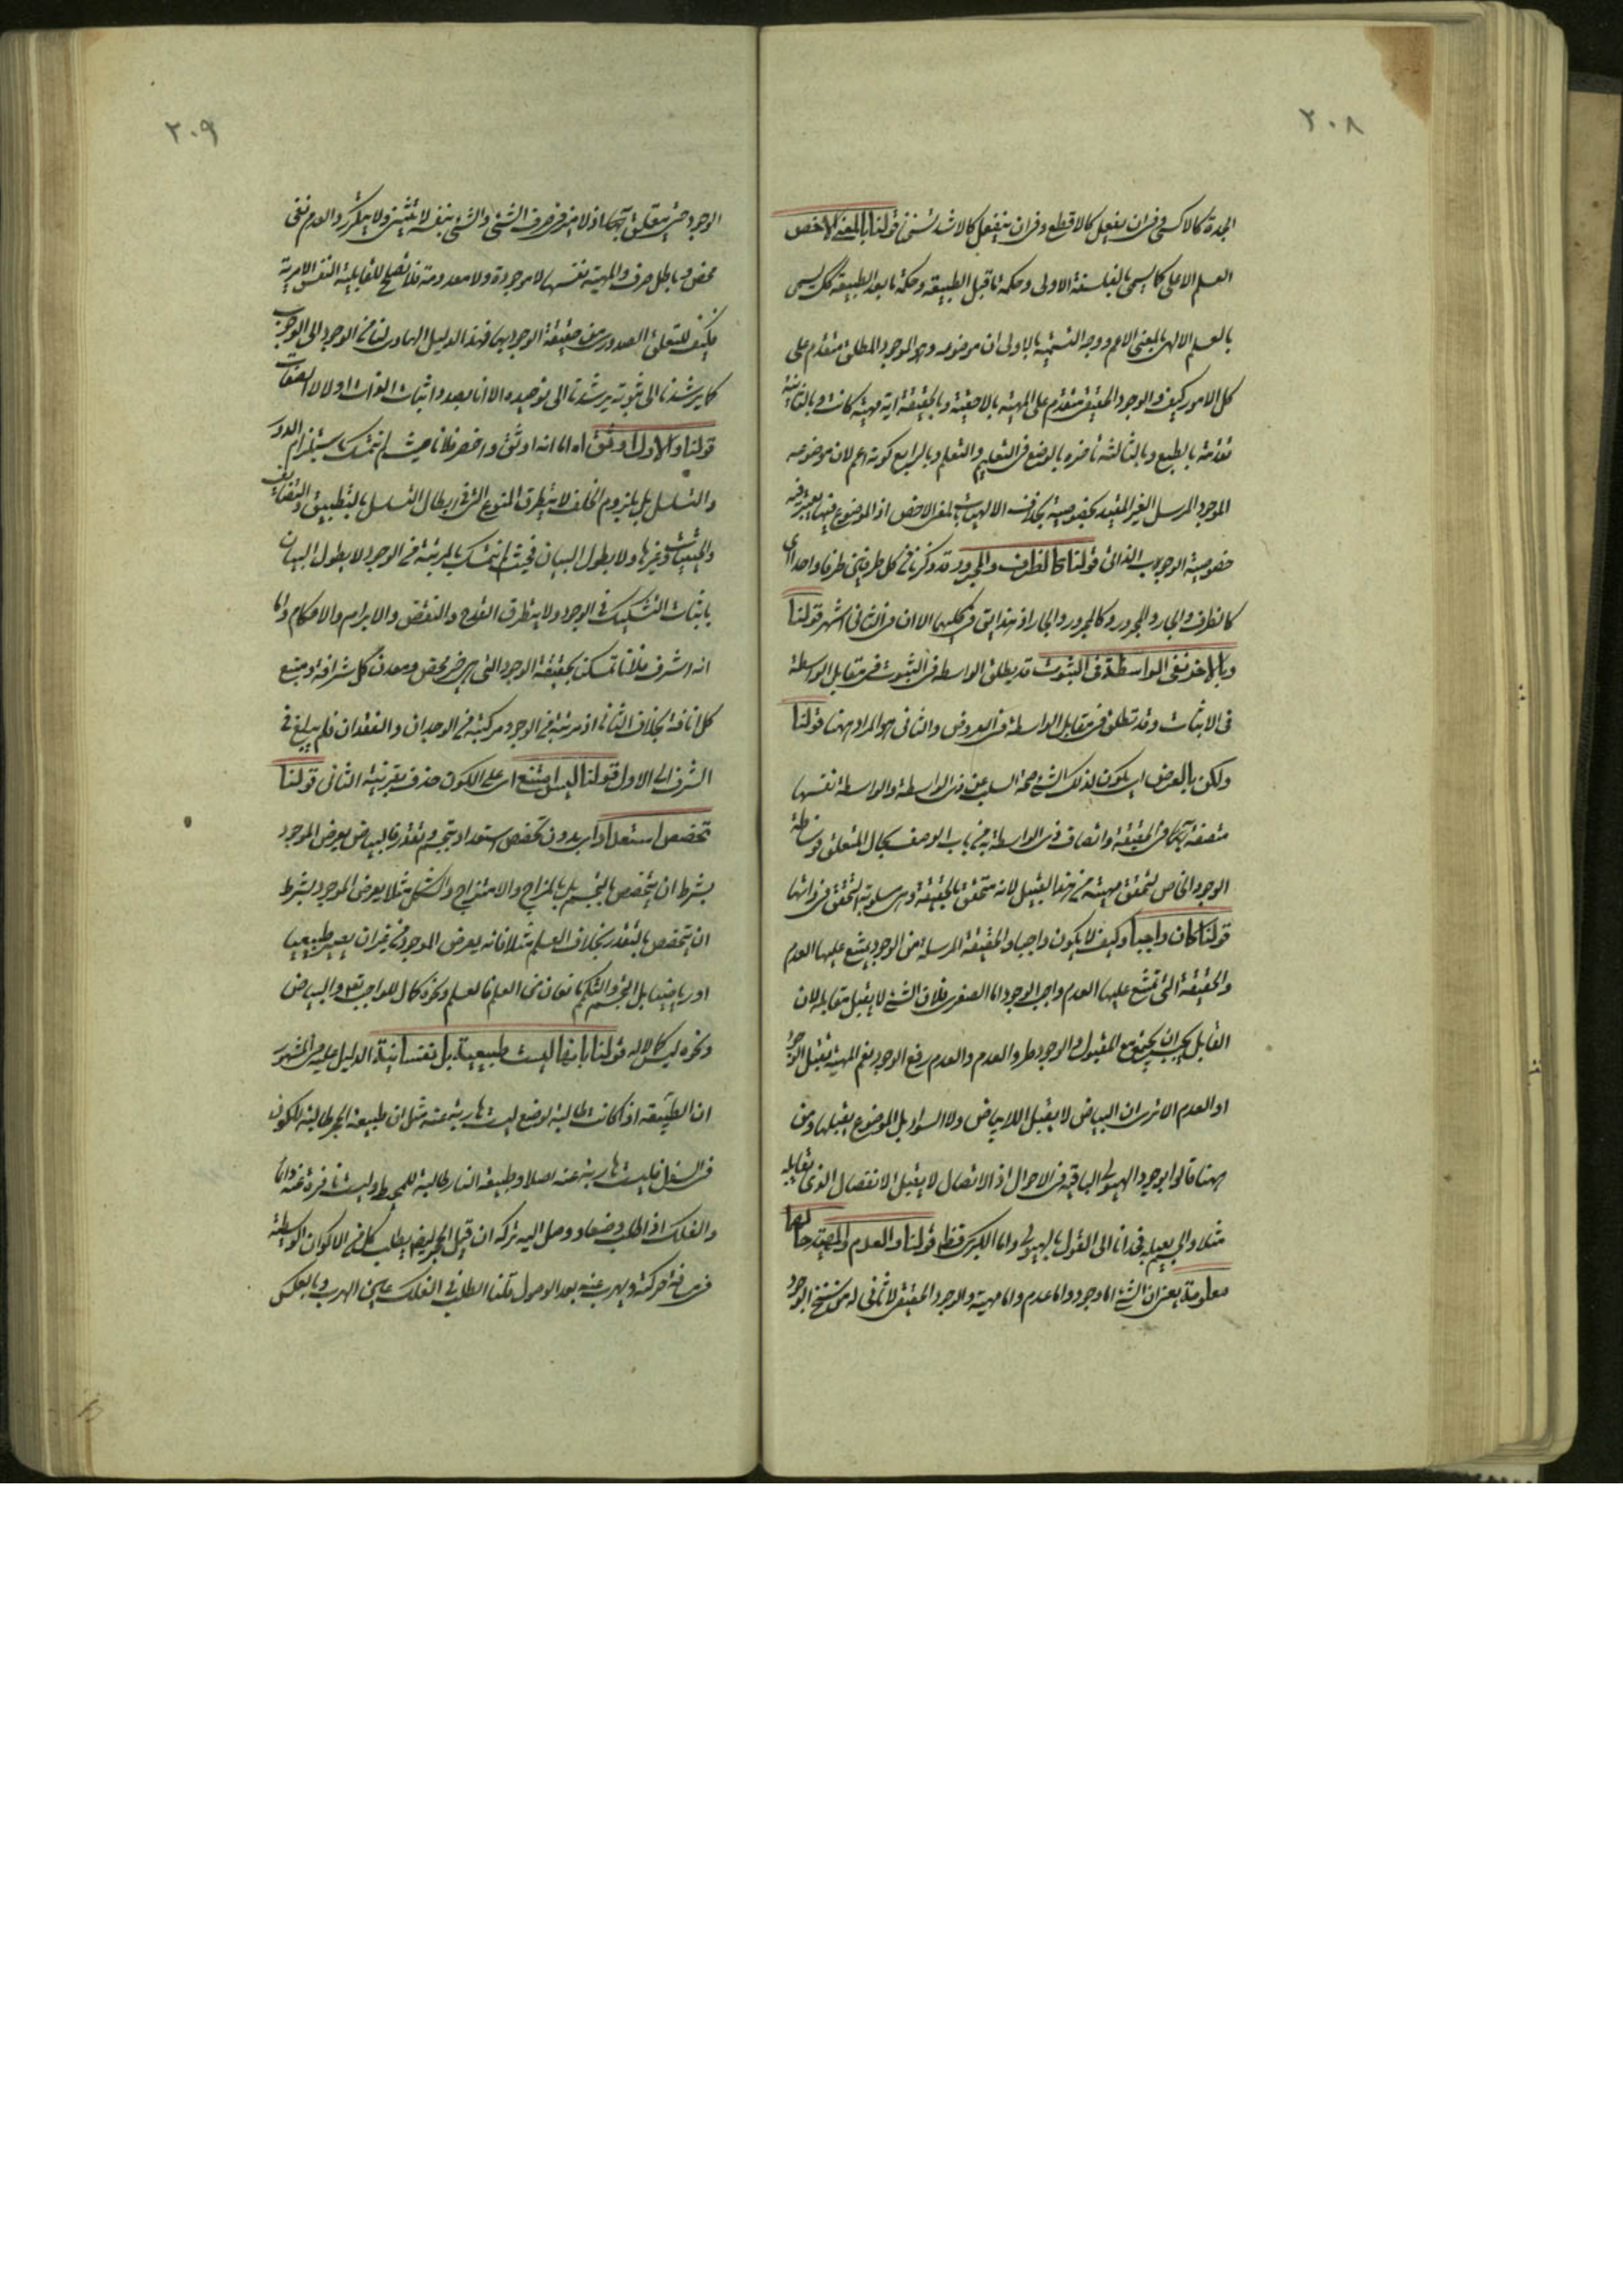 ٢٠٨
الجدة كالاكسى وفى ان يفعل كالاقطع وفى ان ينفعل كالاشد تسخنا قولنا بالمعنى الاخص
العلم الاعلى كما يسمى بالفلسفة الاولى وحكمة ما قبل الطبيعة وحكمة ما بعد الطبيعة كك يسمى
بالعلم الالهى بالمعنى الاعم ووجه التسمية بالاولى ان موضوعه وهو الموجود المطلق متقدم على
كل الامور كيف والوجود الحقيقى متقدم على المهية بالاحقية وبالحقيقة اية مهية كانت وبالثانية
تقدمه بالطبع وبالثالثة تاخره بالوضع فى التعليم والتعلم وبالرابع كونه اعم لان موضوعه
الموجود المرسل الغير المقيد بخصوصية بخلاف الالهيات بالمعنى الاخص اذ الموضوع فيها يعتبر فيه
خصوصية الوجوب الذاتى قولنا كالظرف والمجرور قد ذكرنا فى كل طرفين طرفا واحدا اى
كالظرف والجار والمجرور وكالمجرور والجار اذ هذا يق فى كليهما الا ان فى الثانى اشهر قولنا
وبالاخر نفى الواسطة فى الثبوت قد يطلق الواسطة فى الثبوت فى مقابل الواسطة
فى الاثبات وقد تطلق فى مقابل الواسطة فى العروض والثانى هو المراد ههنا قولنا
ولكن بالعرض اى يكون لذلك الشئ صحة السلب عن ذى الواسطة والواسطة نفسها
متصفة به بالحقيقة واتصاف ذى الواسطة به من باب الوصف بحال المتعلق فوساطة
الوجود الخاص لتحقق مهيته من هذا القبيل لانه متحقق بالحقيقة وهى مسلوبة التحقق فى ذاتها
قولنا كان واجبا وكيف لا يكون واجبا والحقيقة المرسلة من الوجود يمتنع عليها العدم
والحقيقة التى تمتنع عليها العدم واجب الوجود اما الصغرى فلان الشئ لا يقبل مقابله لان
القابل يجب ان يجتمع مع المقبول والوجود طرد العدم والعدم رفع الوجود نعم المهية يقبل الوجود
او العدم الا ترى ان البياض لا يقبل اللابياض ولا السواد بل الموضوع يقبلها ومن
ههنا قالوا بوجود الهيولى الباقية فى الاحوال اذ الاتصال لا يقبل الانفصال الذى يقابله
مثلا والى بعيله فى اما الى القول بالهيولى واما الكبرى فظ قولنا والعدم والمهية حالهما
معلومة يعنى ان الشئ اما وجود واما عدم واما مهية والوجود الحقيقى لا ثانى له من سنخ الوجود
٢٠٩
الوجود حتى يتعلق به اذ لا ميز فى صرف الشئ والشئ بنفسه لا يتثنى ولا يتكرر والعدم نفى
محض وباطل صرف والمهية نفسها لا موجودة ولا معدومة فلا تصلح للقابلية النفس الامرية
فكيف للتعلق الصدورى من حقيقة الوجود بها فهذا الدليل الهادى لنا من الوجود الى الوجوب
كما يرشدنا الى ثبوته يرشدنا الى توحيده الا انا بصدد اثبات الذات اولا لا الصفات
قولنا والاول اوثق اه اما انه اوثق واخصر فلانا حيث لم نتمسك باستلزام الدور
والتسلسل بل بلزوم الخلف لا يتطرق المنوع التى فى ابطال التسلسل بالتطبيق والتضايف
والحيثيات وغيرها ولا يطول البيان فحيث لم نتمسك بالمرتبة فى الوجود لا يطول البيان
باثبات التشكيك فى الوجود ولا يتطرق القدح والنقض والابرام والاحكام واما
انه اشرف فلانا تمسكنا بحقيقة الوجود التى هى خير محض ومعدن كل شرافة ومنبع
كل انافة بخلاف الثانى اذ مرتبة فى الوجود مركبة من الوجدان والفقدان فلم يبلغ فى
الشرف الى الاول قولنا ليس امتنع اى على الكون حذف بقرينة الثانى قولنا
تخصص استعدادا اى بدون تخصص استعداد بتجسم وتقدر فالبياض يعرض الموجود
بشرط ان يتخصص بالتجسم بل بالمزاج والامتزاج والشكل مثلا يعرض الموجود بشرط
ان يتخصص بالتقدر بخلاف العلم مثلا فانه يعرض الموجود من غير ان يصير طبيعيا
او رياضيا بل التجسم والتكمم مانعان من العلم فالعلم ونحوه كمال للواجب تعالى والبياض
ونحوه ليس كمالا له قولنا بانها ليست طبيعية بل نفسانية الدليل عليه المشهور
ان الطبيعة اذا كانت طالبة لوضع ليست هاربة عنه مثل ان طبيعة الحجر طالبة للكون
فى السفل فليست هاربة عنه اصلا وطبيعة النار طالبة للمحيط وليست نافرة عنه دائما
والفلك اذا طلب وضعا ووصل اليه تركه ان قيل الحجر ايض يطلب كلا من الاكوان الوسطية
فى مسافة حركته ويهرب عنه بعد الوصول قلنا الطلب فى الفلك عين الهرب وبالعكس